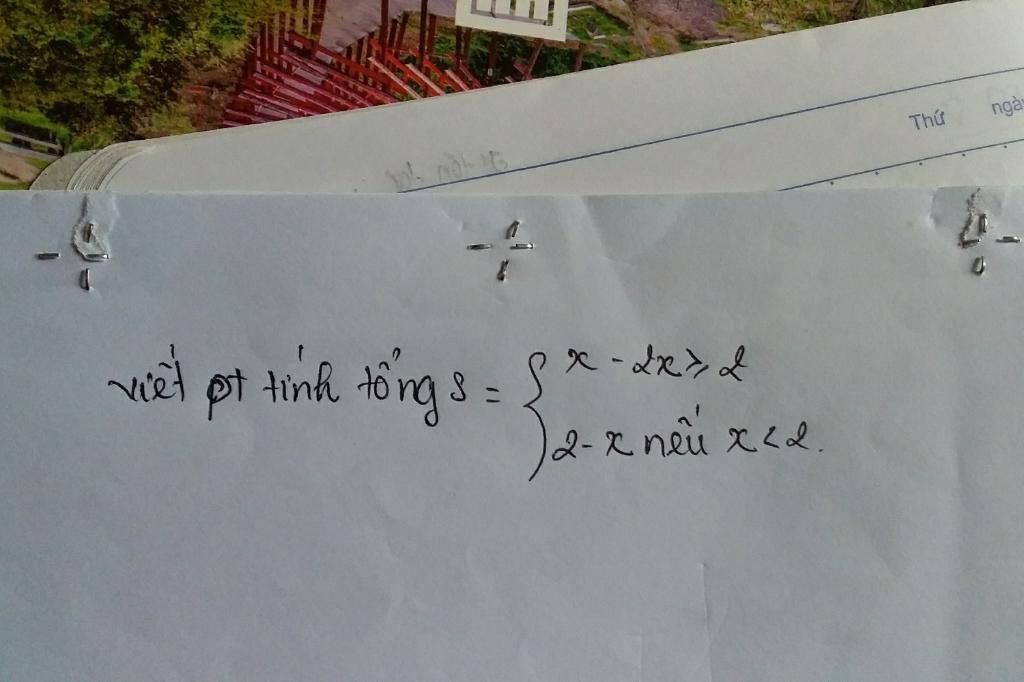 Thứ ngày
viết pt tính tổng S = { x - 2x ≥ 2
2 - x nếu x < 2.